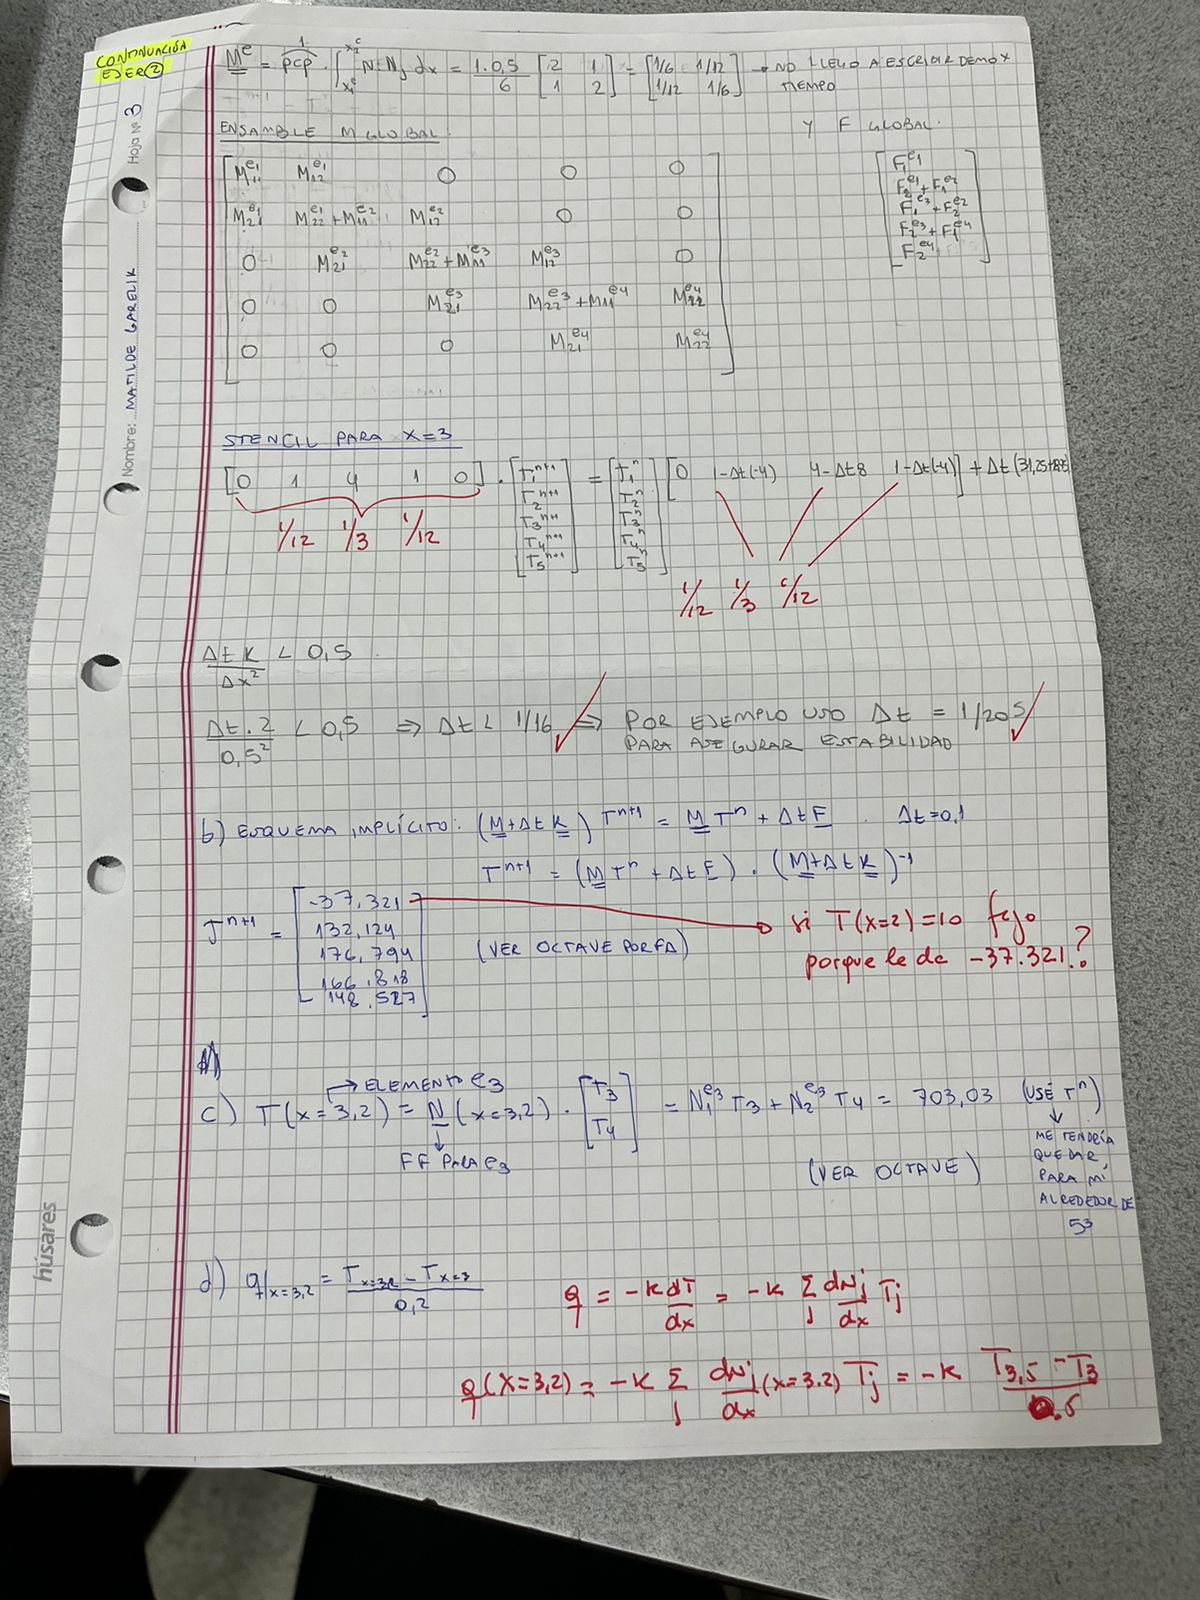 CONTINUACIÓN
EJER ②
Hoja Nº 3
Nombre: MATILDE GARELIK
húsares
M^e = ρcp · ∫_{x_1^e}^{x_2^e} N_i N_j dx = 1.0,5/6 [2 1; 1 2] = [1/6 1/12; 1/12 1/6] → NO LLEGO A ESCRIBIR DEMO X
1
TIEMPO
ENSAMBLE M GLOBAL: Y F GLOBAL.
M_11^e1 M_12^e1 0 0 0 F_1^e1
M_21^e1 M_22^e1 + M_11^e2 M_12^e2 0 0 F_2^e1 + F_1^e2
0 M_21^e2 M_22^e2 + M_11^e3 M_12^e3 0 F_1^e3 + F_2^e2
0 0 M_21^e3 M_22^e3 + M_11^e4 M_22^e4 F_2^e3 + F_1^e4
0 0 0 M_21^e4 M_22^e4 F_2^e4
STENCIL PARA X=3
[0 1 4 1 0] · [T_1^n+1 T_2^n+1 T_3^n+1 T_4^n+1 T_5^n+1] = [T_1^n T_2^n T_3^n T_4^n T_5^n] [0 1-Δt(-4) 4-Δt8 1-Δt(-4)] + Δt
1/12 1/3 1/12
1/12 1/3 1/12
Δt K / Δx² < 0,5
Δt . 2 / 0,5² < 0,5 ⇒ Δt < 1/16 ⇒ POR EJEMPLO USO Δt = 1/20 s
PARA ASEGURAR ESTABILIDAD
b) ESQUEMA IMPLÍCITO: (M+Δt K) T^n+1 = M T^n + Δt F . Δt=0,1
T^n+1 = (M T^n + Δt F) . (M+Δt K)^-1
T^n+1 = [-37,321
132,124
176,794
166,818
148,527]
(VER OCTAVE PORFA)
si T(x=2)=10 fijo
porque le da -37.321?
→ ELEMENTO e3
c) T(x=3,2) = N(x=3,2) · [T3 T4] = N_1^e3 T3 + N_2^e3 T4 = 703,03 (USÉ T^n)
FF PARA e3
(VER OCTAVE)
ME TENDRÍA
QUE DAR
PARA MÍ
ALREDEDOR DE
53
d) q|x=3,2 = T_x=3,2 - T_x=3 / 0,2
q = -k dT/dx = -k Σ_j dNj/dx Tj
q(x=3,2) = -k Σ_j dNj/dx (x=3.2) Tj = -k T_3,5 - T_3 / 0.5